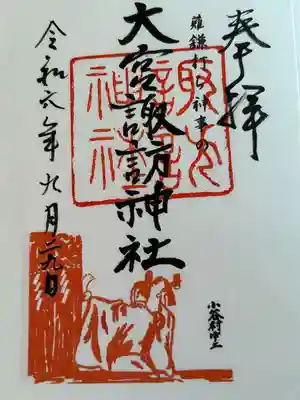 奉拝
薙鎌打ち神事の
大宮諏訪神社
令和六年九月二九日
小谷村中土